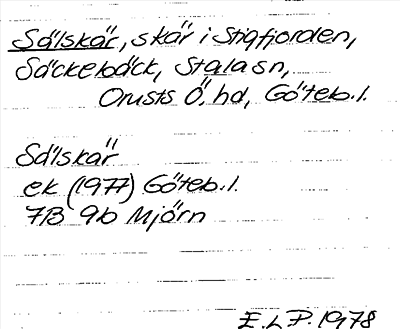 Sälskär, skär i Stigfjorden,
Säckebäck, Stala sn,
Orusts Ö. hd, Göteb. l.
Sälskär
ek (1977) Göteb. l.
7B 9b Mjörn
E. L P. 1978